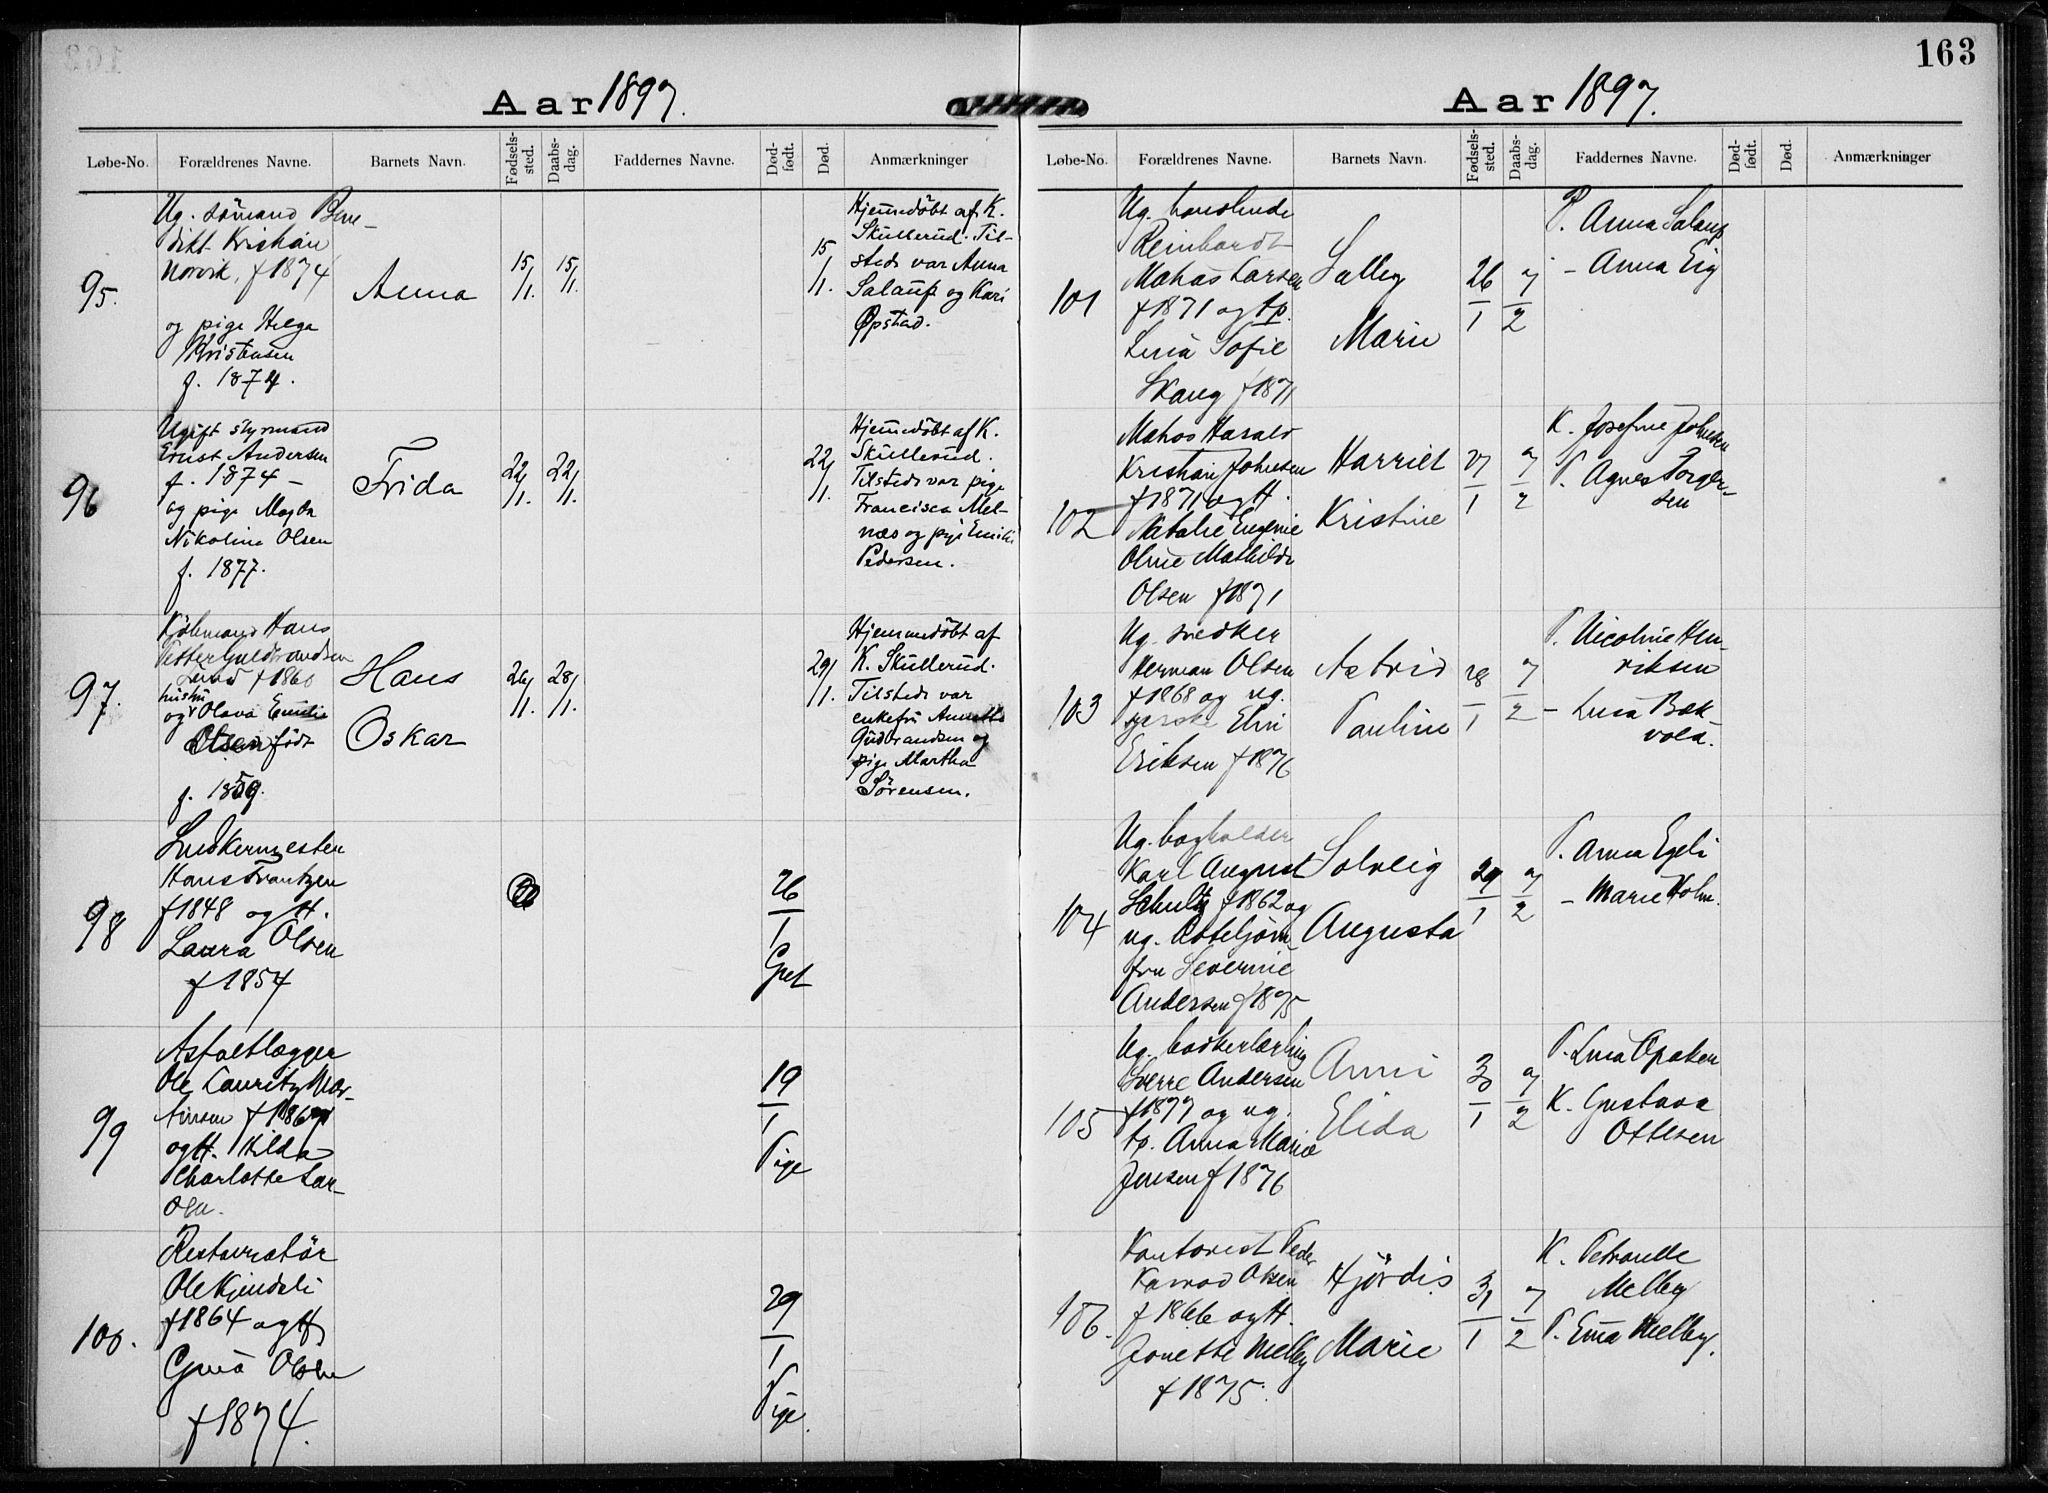 163
Aar 1897.
Løbe-No.
Forældrenes Navne.
Barnets Navn.
Fødsels-
sted.
Daabs-
dag.
Faddernes Navne.
Død-
født.
Død.
Anmærkninger
95.
Ug. sömand Bene-
dikt Kristian
Norvik, f 1874
og pige Helga
Kristensen
f. 1874.
Anna
15/1.
15/1.
15/1.
Hjemmedöbt af K.
Skullerud. Til-
stede var Anna
Salaup og Kari
Opstad.
96
Ugift styrmand
Ernst Andersen
f. 1874 –
og pige Magda
Nikoline Olsen
f. 1877.
Frida
22/1.
22/1.
22/1.
Hjemmedöbt af K.
Skullerud.
Tilstede var pige
Francisca Mel-
næs og pige Emilie
Pedersen.
97.
Kjöbmand Hans
Petter Guldbrandsen
Lund f 1860
hustru
og Olava Emilie
Olsen født
f. 1859.
Hans
Oskar
26/1.
28/1.
29/1.
Hjemmedöbt af
K. Skullerud.
Tilstede var
enkefru Annette
Gudbrandsen og
pige Martha
Sörensen.
98
Snedkermester
Hans Frantzen
f 1848 og H.
Laura Olsen
f 1854
26/1
Gut
99
Asfaltlægger
Ole Lauritz Mar-
tinsen f 1867
og H. Hilda
Charlotte Lar-
sen.
19/1
Pige
100.
Restauratör
Ole Kjendsli
f 1864 og H
Gina Olsen
f 1874.
29/1
Pige.
Aar 1897.
Løbe-No.
Forældrenes Navne.
Barnets Navn.
Fødsels-
sted.
Daabs-
dag.
Faddernes Navne.
Død-
født.
Død.
Anmærkninger
101
Ug.
Reinhardt
Mathias Larsen
f 1871 og tp.
Lina Sofie
Skaug f 1871
Salley
Marie
26/1
7/2
P. Anna Salaup
– Anna Eig
102
Harald
Kristian Johnsen
f 1871 og H.
Natalie Eugenie
Oline Mathilde
Olsen f 1871
Harriet
Kristine
27/1
7/2
K. Josefine Johnsen
P. Agnes Torger-
sen
103
Ug. snedker
Herman Olsen
f 1868 og ug.
syerske Elvi
Eriksen f 1876
Astrid
Pauline
28/1
7/2
P. Nicoline Hen-
riksen
– Lina Bak-
vold.
104
Ug. bogholder
Karl August
Schultz f 1862 og
ug.
fru Severine
Andersen f 1875
Solveig
Augusta
29/1
7/2
P. Anna Egeli
– Marie Holm.
105
Ug.
Sverre Andersen
f 1877 og ug.
tp. Anna Marie
Jensen f 1876
Anni
Elida
30/1
7/2
P. Lina Opaker
K. Gustava
Ottesen
106.
Kontorist Peder
Konrad Olsen
f 1866 og H.
Jonette Melby
f 1875.
Hjördis
Marie
31/1
7/2
K. Petronelle
Melby
P. Ema Melby.